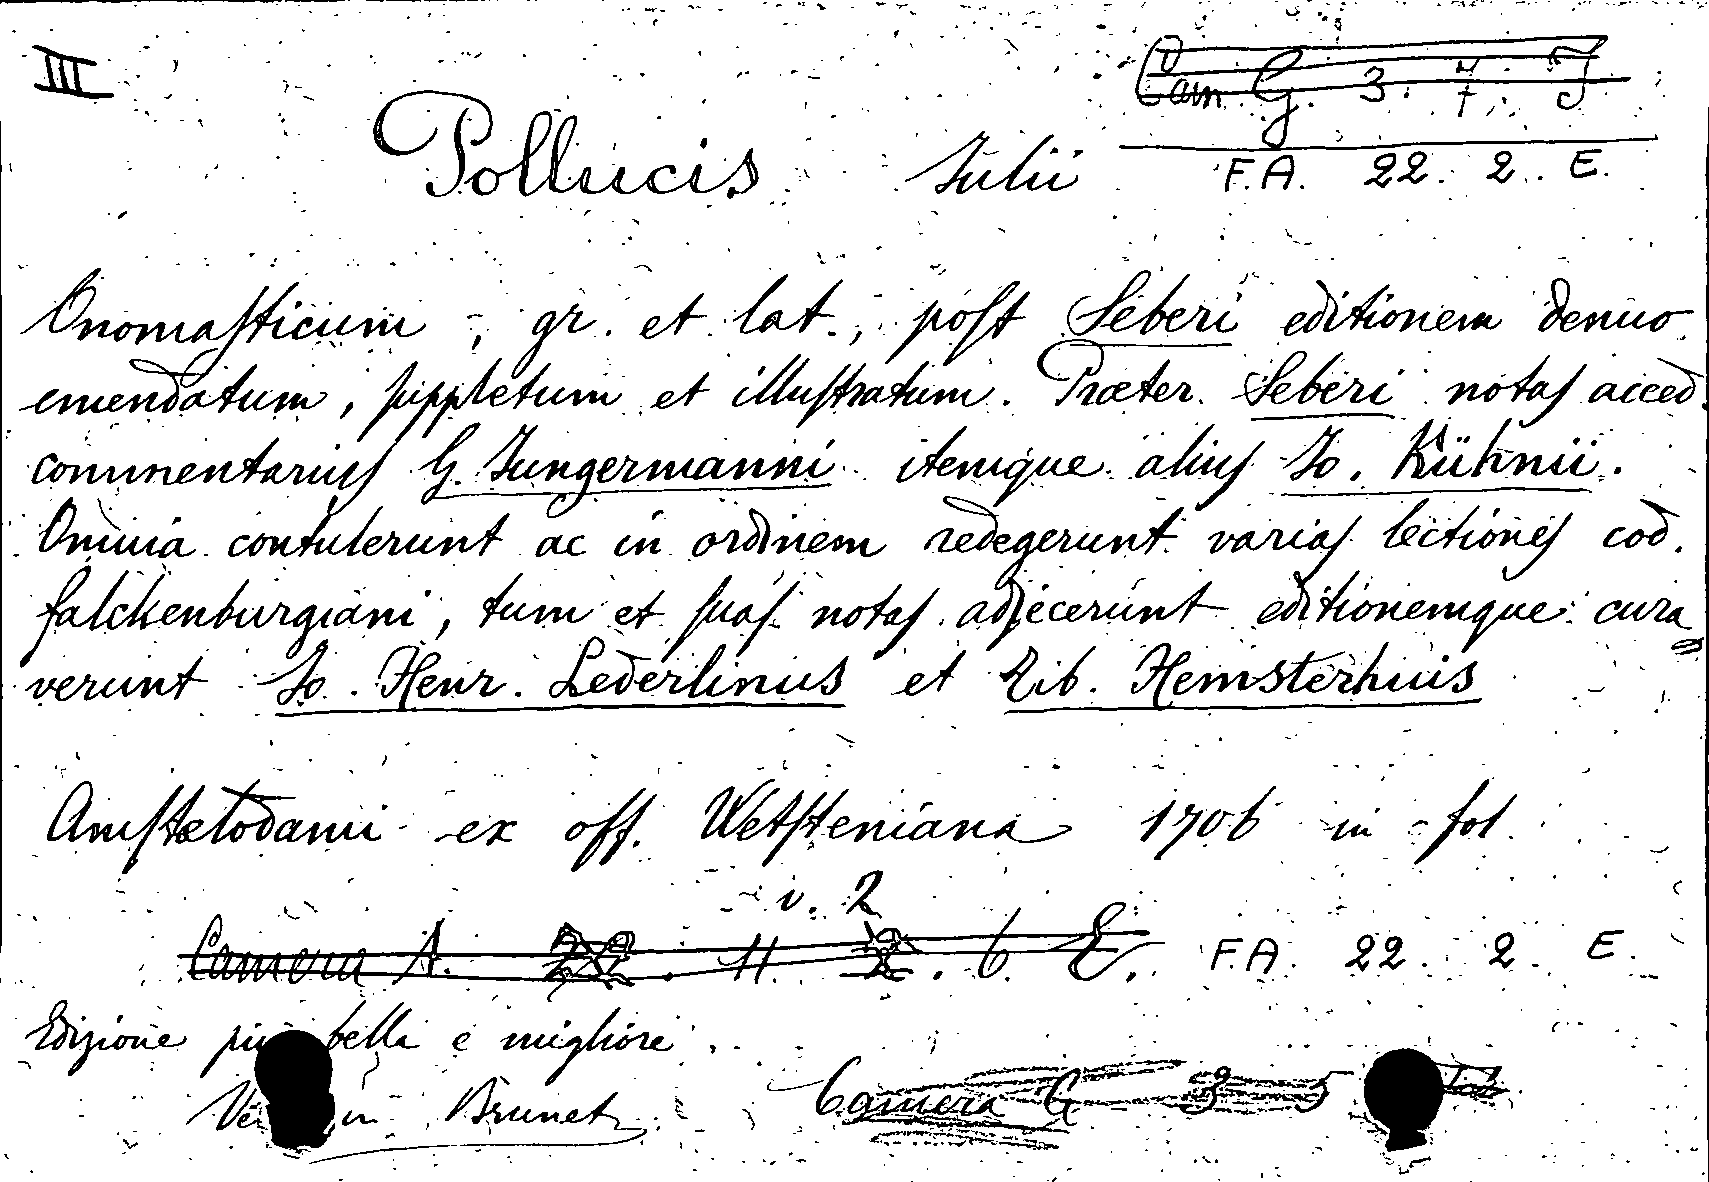 III
Cam G. 3. 7. J
Pollucis Julii F.A. 22. 2. E.
Onomasticum, gr. et lat., post Seberi editionem denuo
emendatum, suppletum et illustratum. Præter Seberi notas acced.
commentarius G. Jungermanni itemque alius Jo. Kühnii.
Omnia contulerunt ac in ordinem redegerunt varias lectiones cod.
falckenburgiani, tum et suas notas adjecerunt editionemque cura
verunt Jo. Henr. Lederlinus et Tib. Hemsterhuis
Amstelodami ex off. Wetsteniana 1706 in fol.
v. 2
Camera A. 22. 11. 2. 6 E. F.A. 22. 2. E.
Edizione più bella e migliore.
in Brunet
Camera G 3 5